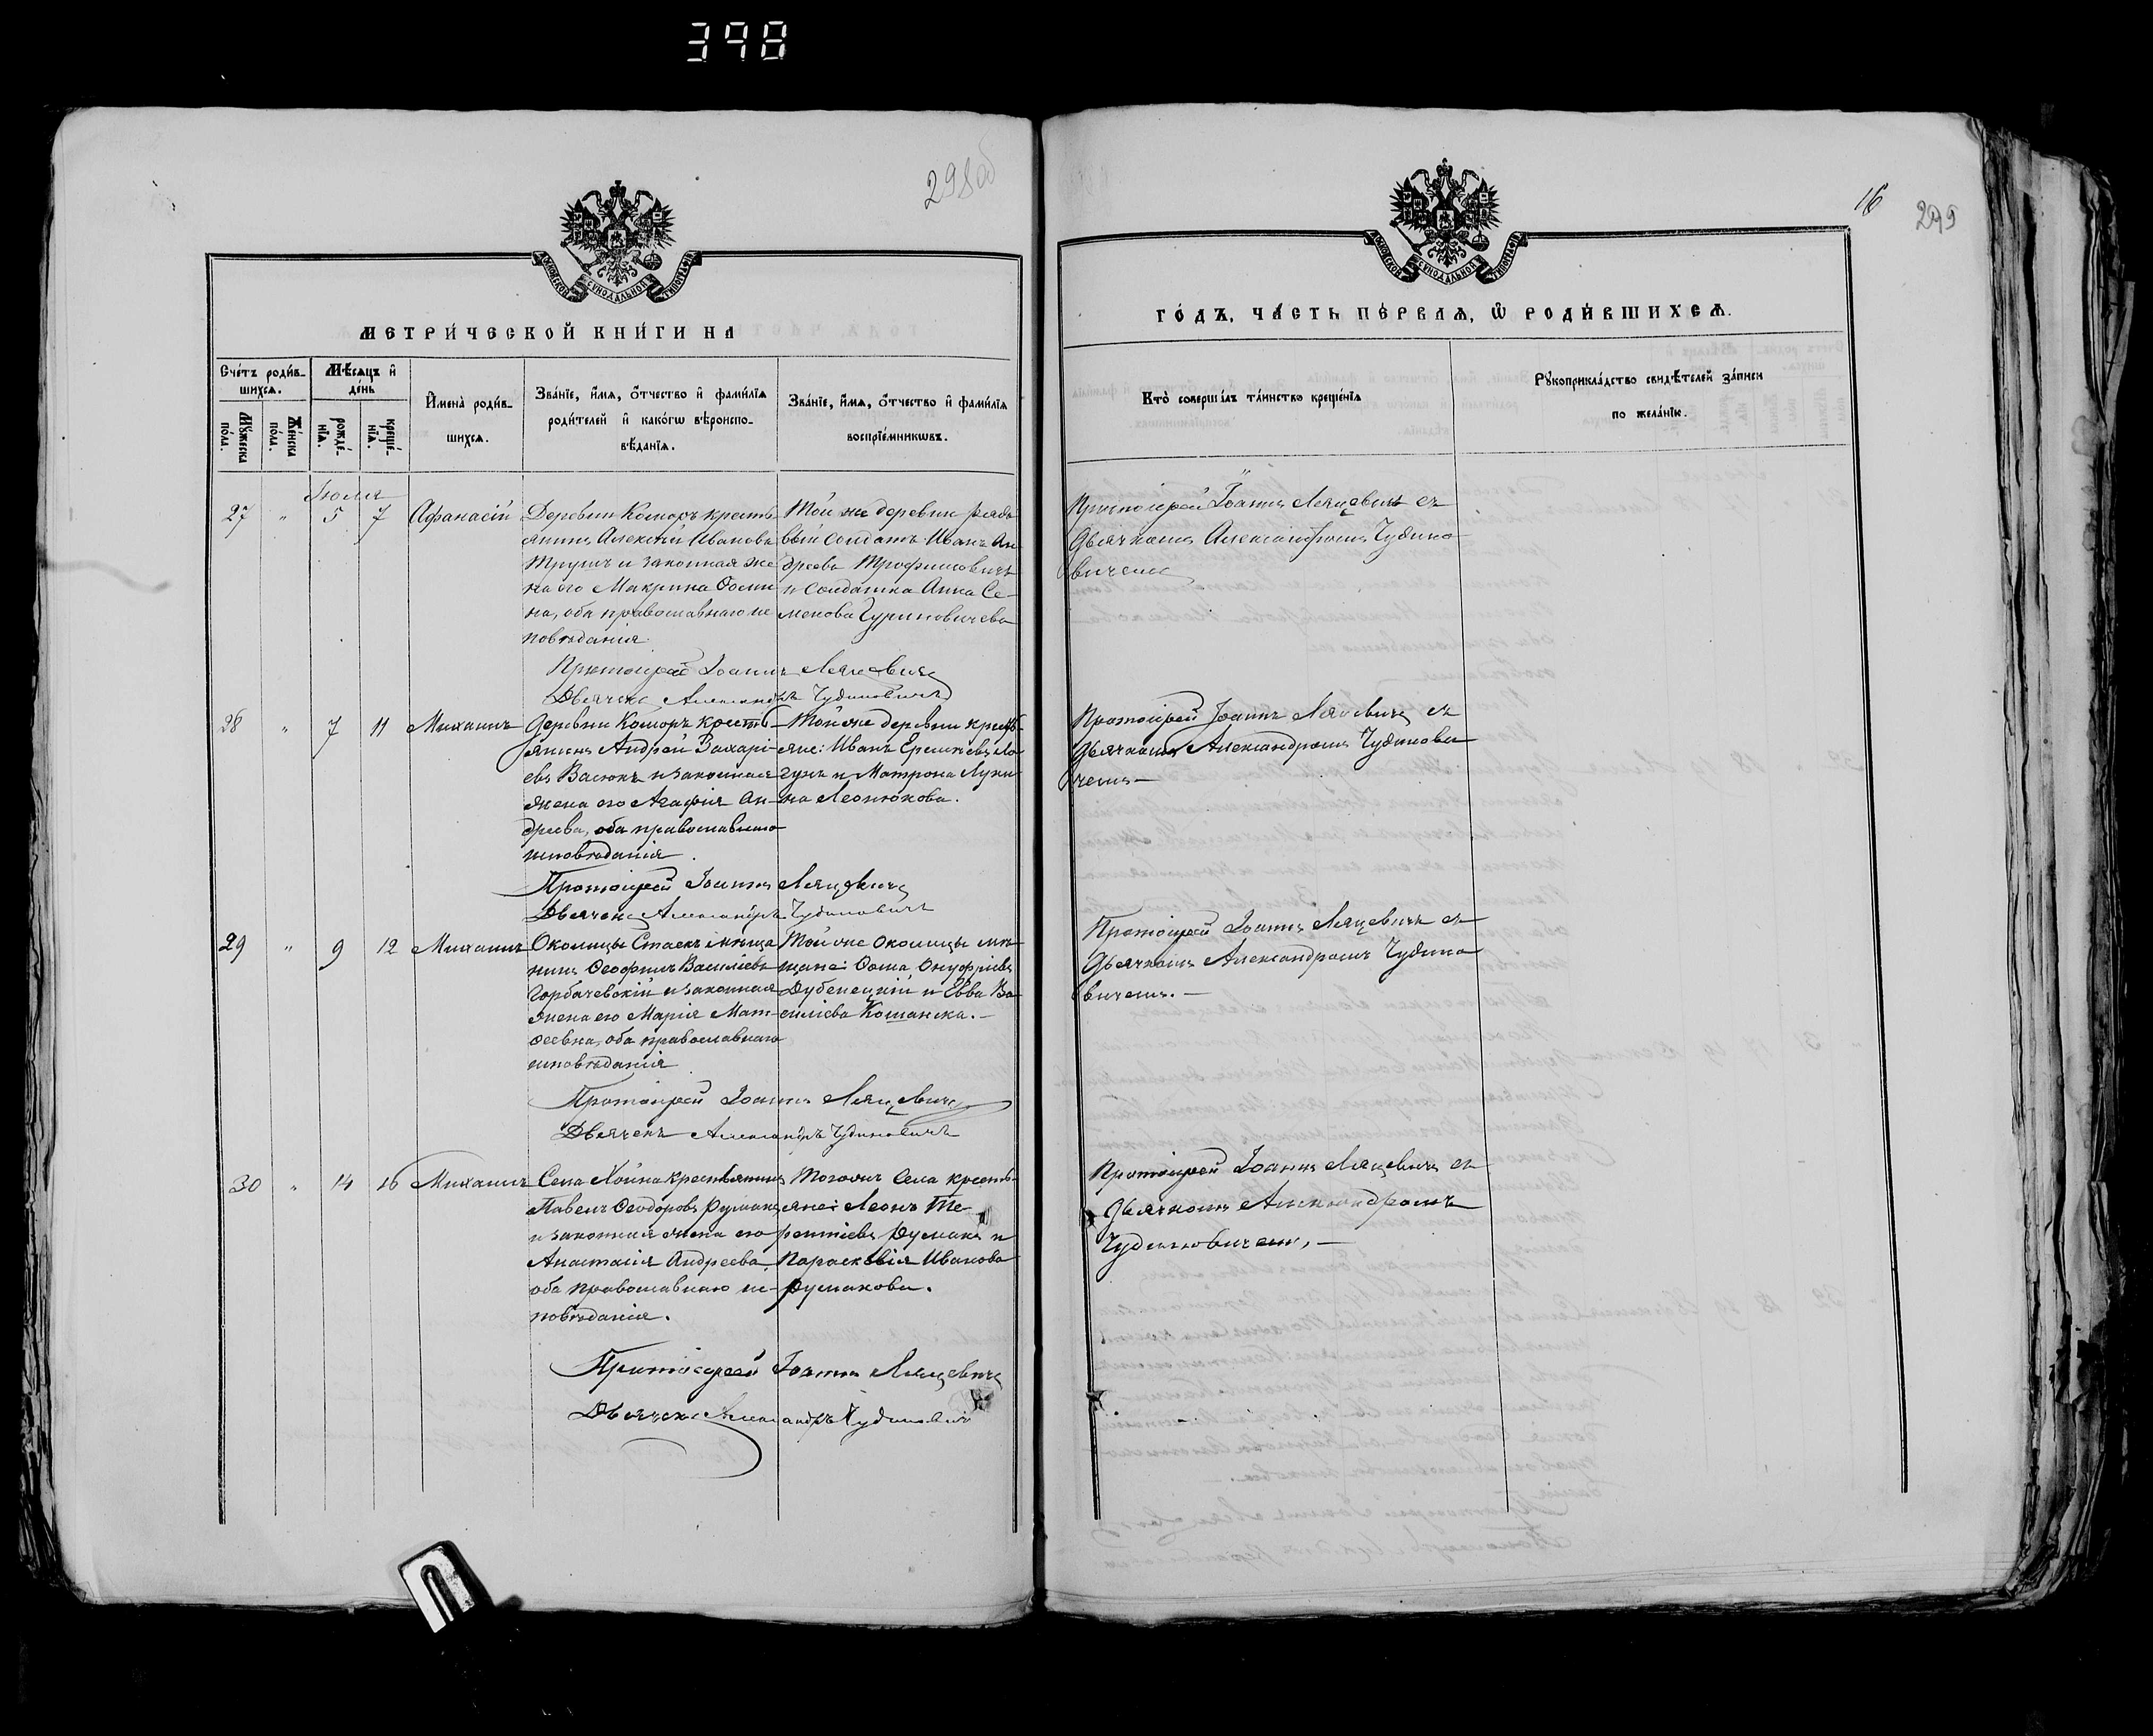 398
298об
КІЕВСКОЙ СѴНОДАЛЬНОЙ ТИПОГРАФІИ
МЕТРИ́ЧЕСКОЙ КНИ́ГИ НА
Сче́тъ роди́в-
шихсѧ.
Мѣ́сѧцъ и҆
де́нь
Мꙋ́жеска
по́ла.
Же́нска
по́ла.
рожде́-
нїѧ.
креще́-
нїѧ.
И҆мена̀ роди́в-
шихсѧ.
Зва́нїе, и҆́мѧ, ѻ҆́тчество и҆ фами́лїѧ
роди́телей и҆ како́гѡ вѣроиспо-
вѣ́данїѧ.
Зва́нїе, и҆́мѧ, ѻ҆́тчество и҆ фами́лїѧ
воспрїе́мникѡвъ.
Іюль
27 " 5 7 Афанасій
Деревни Коморъ кресть
янинъ Алексѣй Ивановъ
и законная же
на его Макрина Ѳоми
на, оба православнаго ис
повѣданія.
Той же деревни рядо
вый солдатъ Иванъ Ан
дреевъ Трофимовичъ
и солдатка Анна Се-
менова Гуриновичева
Протоіерей Іоаннъ Ляцевичъ
Дьячекъ Александръ Чудиновичъ
28 " 7 11 Михаилъ
Деревни Коморъ кресть-
янинъ Андрей Захарі-
евъ Васюкъ и законная
жена его Агафія Ан-
дреева, оба православнаго
исповѣданія.
Той же деревни кресть-
яне: Иванъ Ло
гунъ и Матрона Луки
на Леонюкова.
Протоіерей Іоаннъ Ляцевичъ
Дьячекъ Александръ Чудиновичъ
29 " 9 12 Михаилъ
Околицы Стаекъ мѣща
нинъ Ѳеофилъ Василіевъ
Горбачевскій и законная
жена его Марія Мат-
ѳеевна, оба православнаго
исповѣданія.
Той же околицы мѣ-
щане: Ѳома Онуфріевъ
Дубенецкій и Евва Ва-
силіева Кошанска.-
Протоіерей Іоаннъ Ляцевичъ
Дьячекъ Александръ Чудиновичъ
30 " 14 16 Михаилъ
Села Хойна крестьянинъ
Павелъ Ѳеодоровъ Румакъ
и законная жена его
Анастасія Андреева,
оба православнаго ис-
повѣданія.
Тогожъ села кресть-
яне: Леонъ Те
рентіевъ Румакъ и
Параскевія Иванова
Румакова.
Протоіерей Іоаннъ Ляцевичъ
Дьячекъ Александръ Чудиновичъ
16
299
КІЕВСКОЙ СѴНОДАЛЬНОЙ ТИПОГРАФІИ
ГО́ДЪ, ЧА́СТЬ ПЕ́РВАѦ, Ѡ҆ РОДИ́ВШИХСѦ.
Кто̀ соверша́лъ та́инство креще́нїѧ
Рꙋкоприкла́дство свидѣ́телей за́писи
по жела́нїю.
Протоіерей Іоаннъ Ляцевичъ съ
дьячкомъ Александромъ Чудино
вичемъ
Протоіерей Іоаннъ Ляцевичъ съ
дьячкомъ Александромъ Чудинови
чемъ-
Протоіерей Іоаннъ Ляцевичъ съ
дьячкомъ Александромъ Чудино
вичемъ.-
Протоіерей Іоаннъ Ляцевичъ съ
дьячкомъ Александромъ
Чудиновичемъ,-